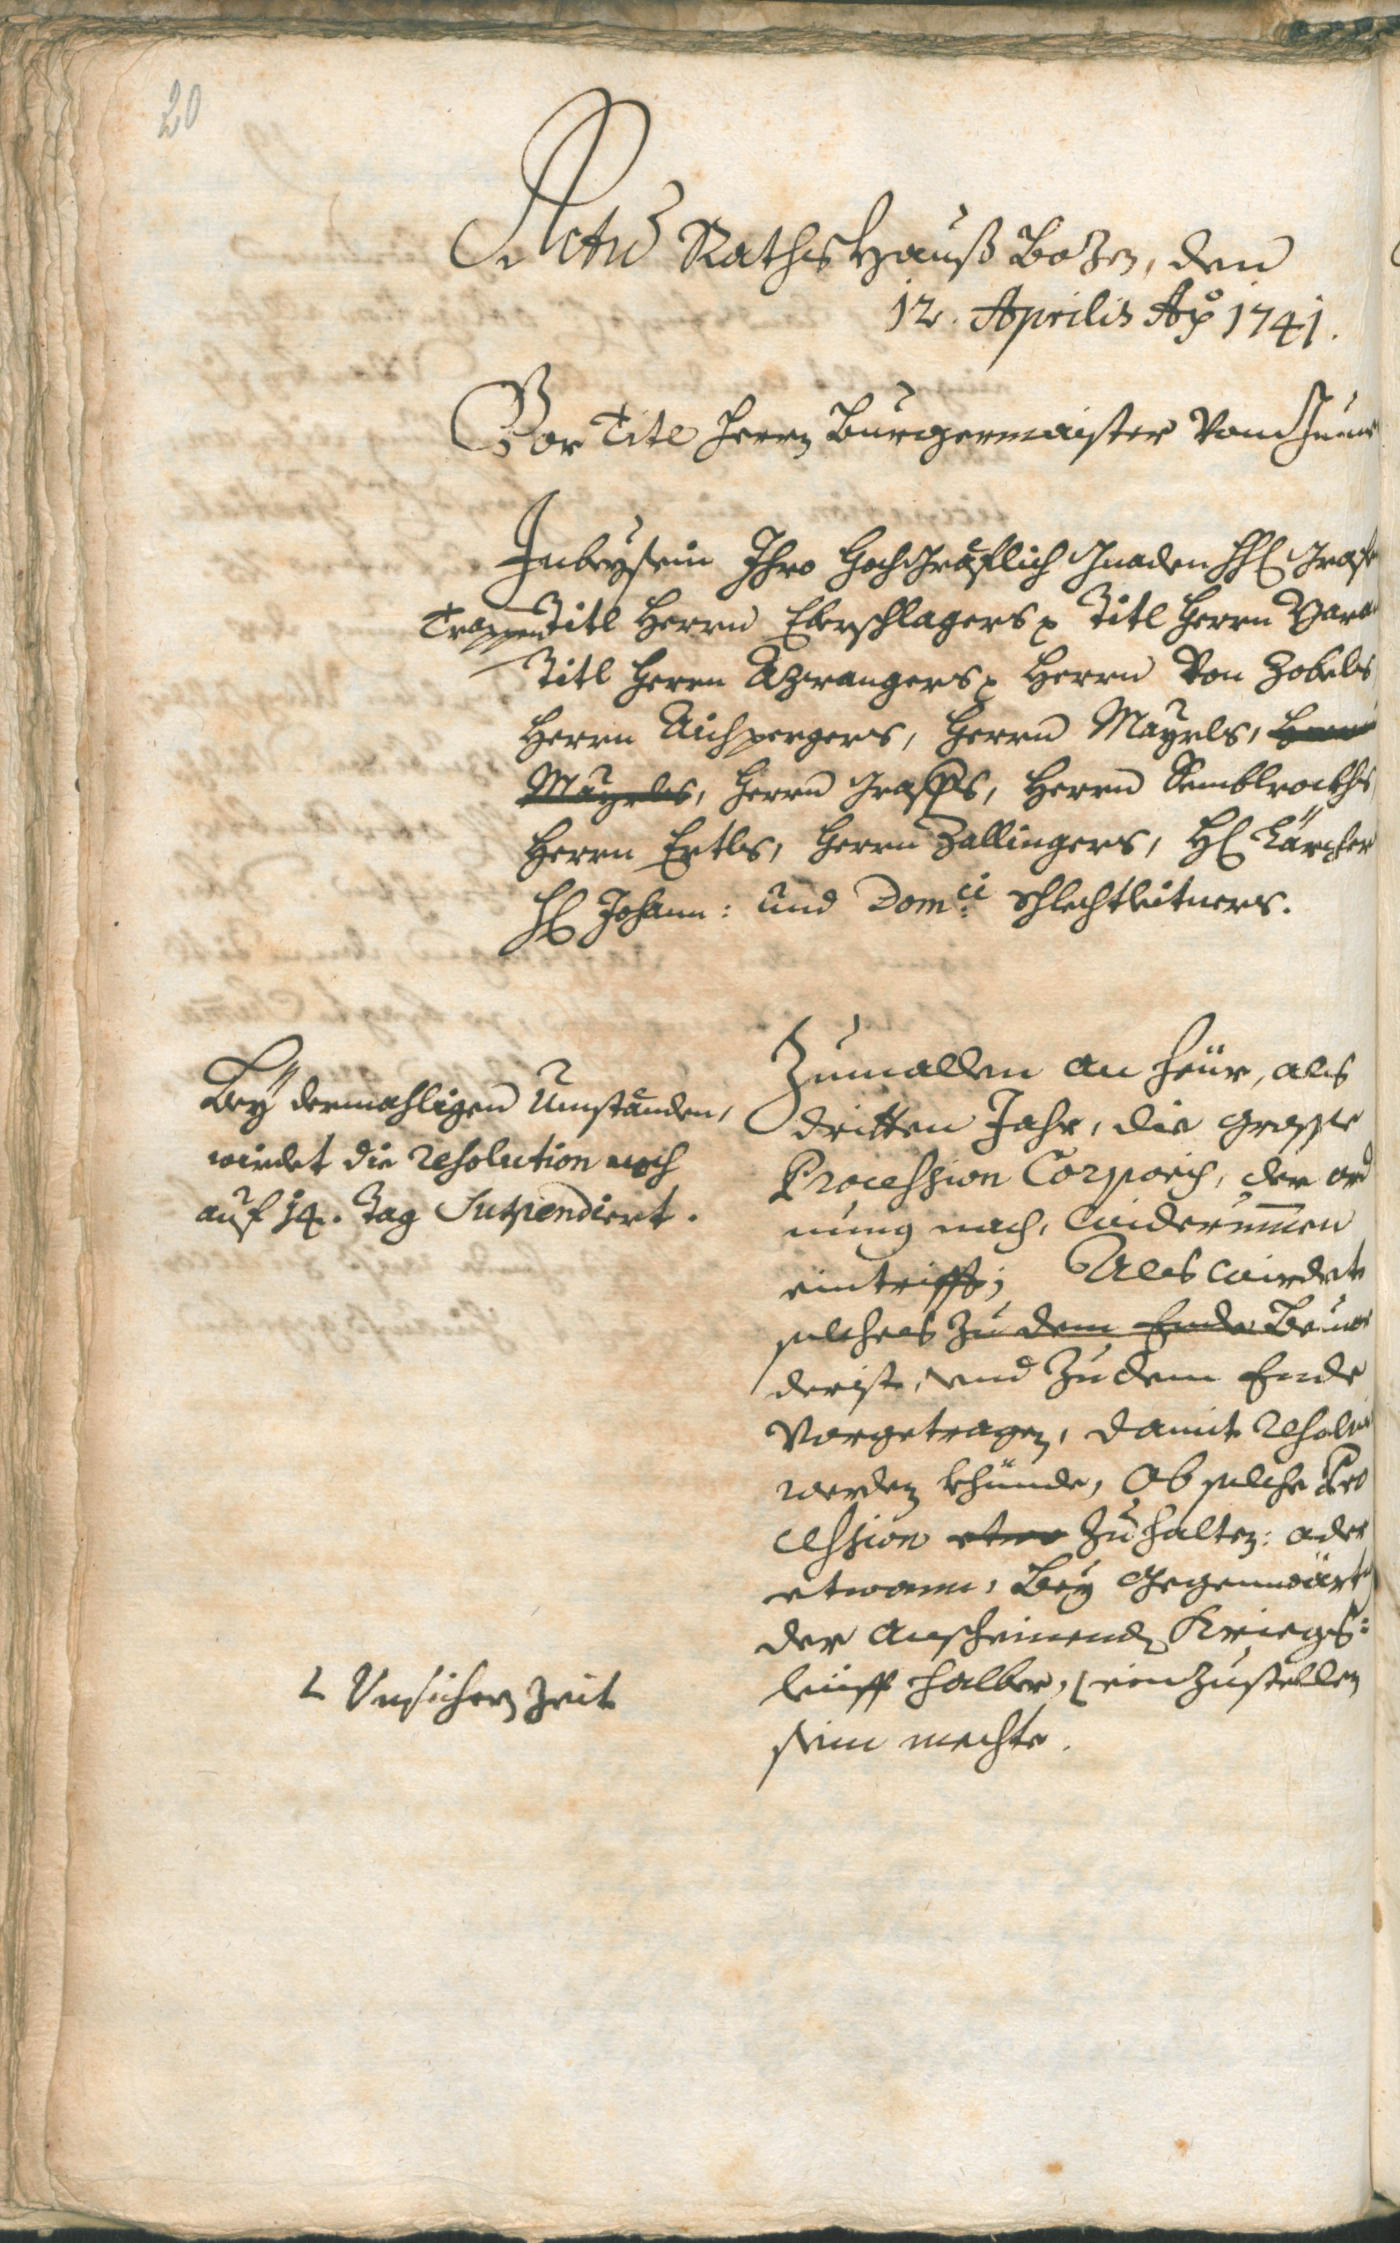 20
Actu Rathshauß Bozen, den
12. Aprilis Ao 1741.
Vor Titl herrn Burgermaister von
Inbeysein Ihro Hochgräflich Gnaden HH Grafen
Trappen Titl Herrn Eberschlagers p Titl herrn
Titl herrn Azwangers p Herrn von Zobels
Herrn Aichpergers, herrn Mayrls, herrn
Mayrls, herrn Graffs, Herrn Semblrockhs
Herrn Ertls, herrn Zallingers, HE Lärcher
HE Johann: und Domci: Schlechtleitners.
Bey dermahligen Umständen,
wirdet die resolution noch
auf 14. Tag Suspendiert.
Zumallen an heür, als
dritten Jahr, die grosse
Procession Corporis, der ord
nung nach, widerumen
eintrifft; Als wirdet
solches zu dem Ende
und zu dem Ende
vorgetragen, damit
werden khünde, Ob solche Pro
cession etwo zuhalten: oder
etwann, bey gegenwärtig
der anscheinend Kriegs=
leüff halber, einzustellen
sein mechte.
Unsichern Zeit